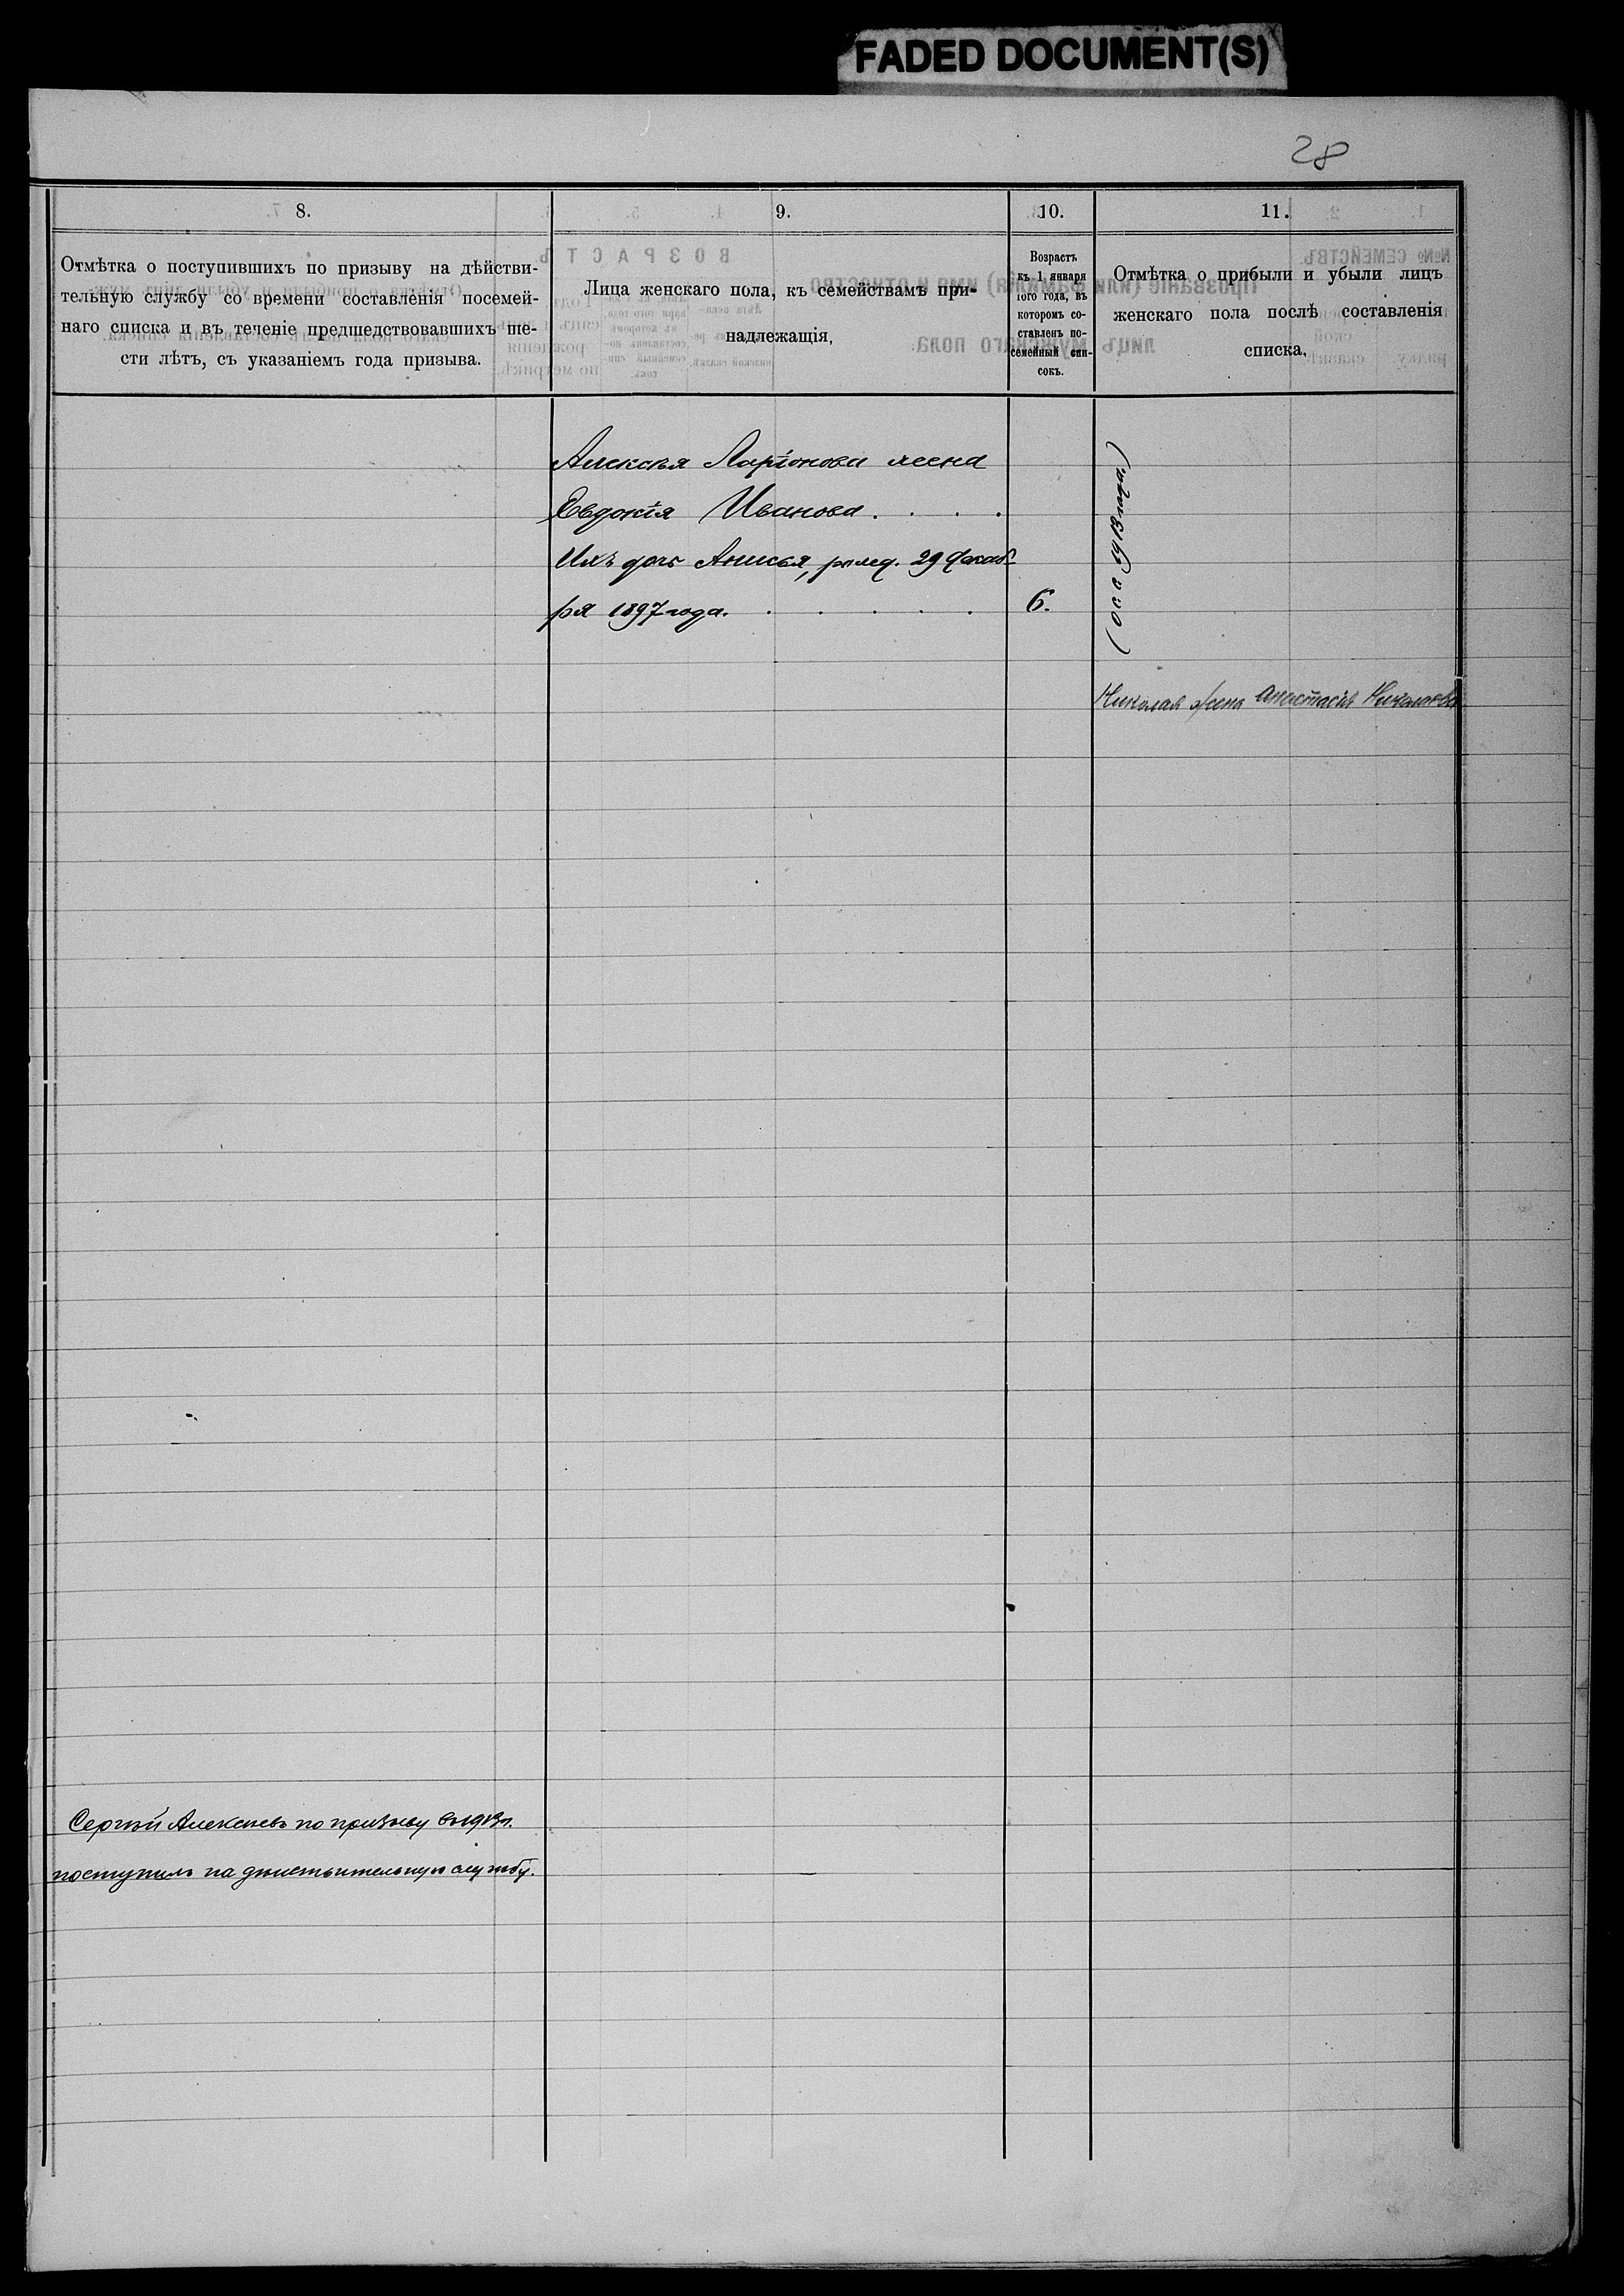 FADED DOCUMENT(S)
28
8.
9.
10.
11.
Отмѣтка о поступившихъ по призыву на дѣйстви-
тельную службу со времени составленія посемей-
наго списка и въ теченіе предшедствовавшихъ ше-
сти лѣтъ, съ указаніемъ года призыва.
Лица женскаго пола, къ семействамъ при-
надлежащія.
Возрастъ
къ 1 января
того года, въ
которомъ со-
ставленъ по-
семейный спи-
сокъ.
Отмѣтка о прибыли и убыли лицъ
женскаго пола послѣ составленія
списка.
Алексѣя Ларіонова жена
Евдокія Иванова. . . .
Ихъ дочь Анисья, рожд. 29 Декаб-
ря 1897 года. . . . . .
6.
1913 года.)
Николая жена Анастасія Николаева
Сергѣй Алексѣевъ по призыву въ 1913 г.
поступилъ на дѣйствительную службу.